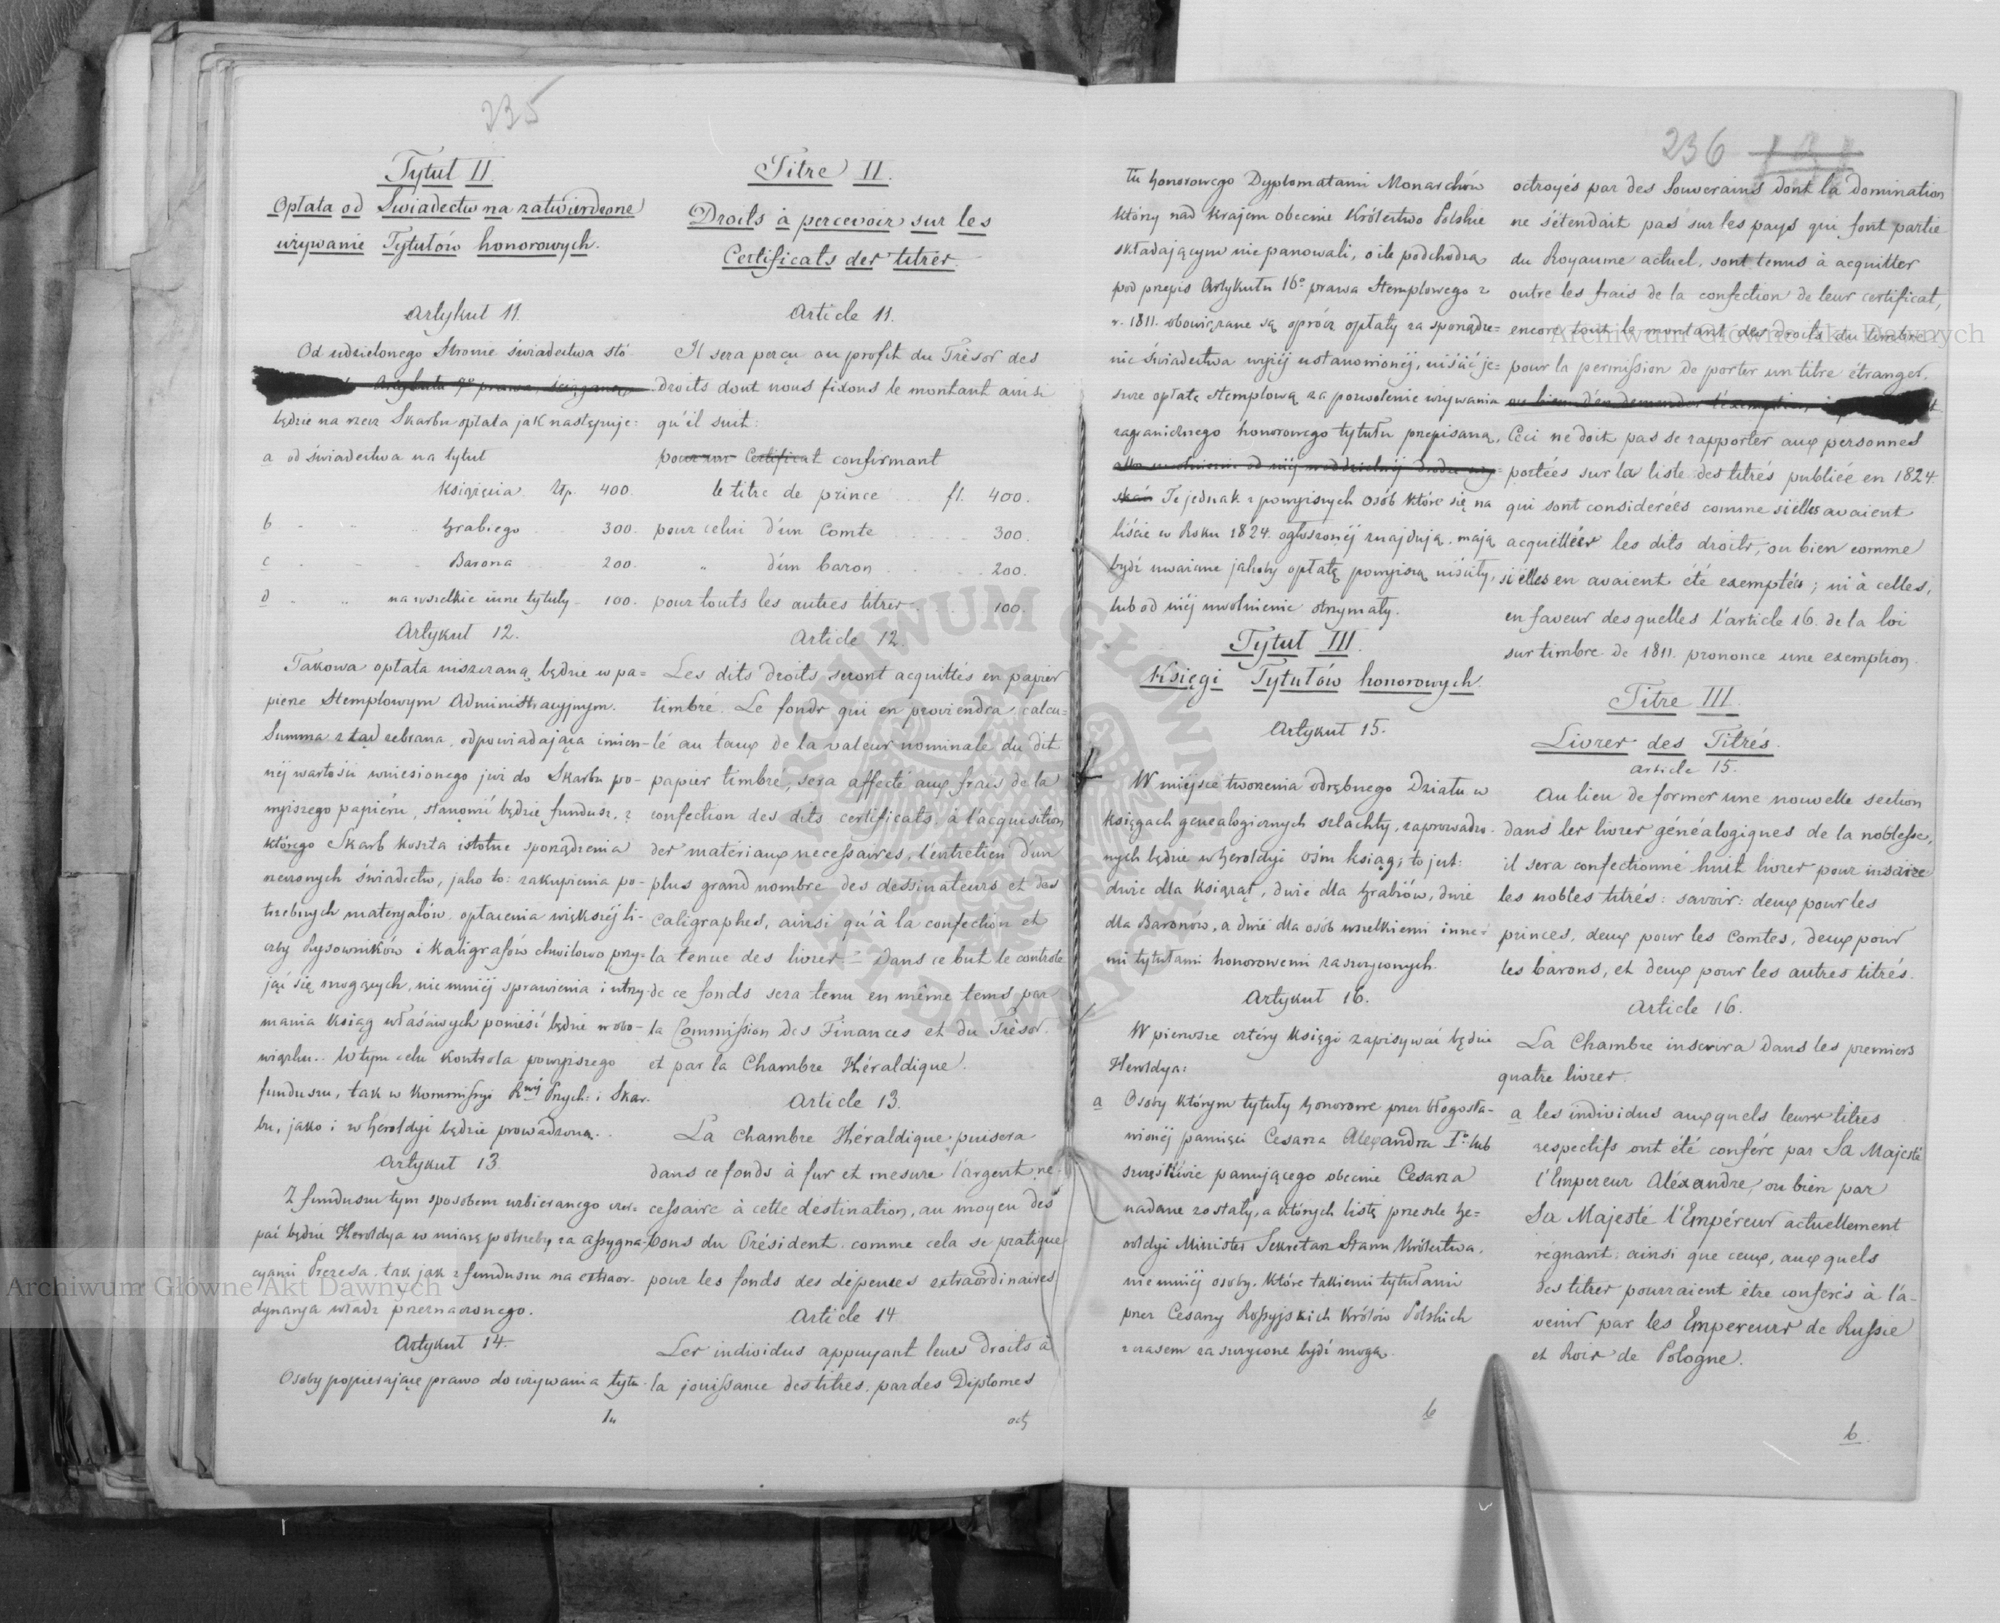 235
Tytuł II.
Opłata od Swiadectw na zatwierdzone
używanie Tytułów honorowych.
Artykuł 11.
Od udzielonego Stronie świadectwa sto-
Artykułu 9go prawa, ściągane
będzie na rzecz Skarbu opłata jak następuje:
a od świadectwa na tytuł
Xsiążęcia Złp. 400.
b " " " Hrabiego 300.
c " " " Barona 200.
d " " na wszelkie inne tytuły 100.
Artykuł 12.
Takowa opłata uiszczaną będzie w pa-
pierze Stemplowym Administracyjnym.
Summa ztąd zebrana, odpowiadająca imien-
nej wartości wniesionego już do Skarbu po-
wyższego papieru, stanowić będzie fundusz, z
którego Skarb koszta istotne sporządzenia
rzeczonych świadectw, jako to: zakupienia po-
trzebnych materyałów, opłacenia większej li-
czby Rysowników i Kaligrafów chwilowo przy-
jąć się mogących, niemniej sprawienia i utrzy-
mania Ksiąg właściwych ponieść będzie w obo-
wiązku. W tym celu Kontrola powyższego
funduszu, tak w Kommissyi Rwej Przych: i Skar-
bu, jako i w Heroldyi będzie prowadzona.
Artykuł 13.
Z funduszu tym sposobem uzbieranego czer-
pać będzie Heroldya w miarę potrzeby za assygna-
cyami Prezesa, tak jak z funduszu na extraor-
dynarya władz przeznaczonego.
Artykuł 14.
Osoby popierające prawo do używania tytu-
łu
Titre II.
Droits à percevoir sur les
Certificats des titres.
Article 11.
Il sera perçu au profit du Trésor des
droits dont nous fixons le montant ainsi
qu'il suit:
pour un Certificat confirmant
le titre de prince fl. 400.
pour celui d'un Comte 300.
" d'un baron 200.
pour touts les autres titres 100.
Article 12.
Les dits droits seront acquittés en papier
timbré. Le fonds qui en proviendra calcu-
lé au taux de la valeur nominale du dit
papier timbré, sera affecté aux frais de la
confection des dits certificats, à l'acquisition
des matériaux necessaires, l'entretien d'un
plus grand nombre des dessinateurs et des
caligraphes, ainsi qu'à la confection et
la tenue des livres. Dans ce but le controle
de ce fonds sera tenu en même tems par
la Commission des Finances et du Trésor.
et par la Chambre Héraldique.
Article 13.
La Chambre Héraldique puisera
dans ce fonds à fur et mesure l'argent né-
cessaire à cette destination, au moyen des
bons du Président comme cela se pratique
pour les fonds des dépenses extraordinaires
Article 14
Les individus appuyant leurs droits à
la jouissance des titres, par des Diplomes
oct
236
tu honorowego Dyplomatami Monarchów
którzy nad Krajem obecnie Królestwo Polskie
składającym nie panowali, o ile podchodzą
pod przepis Artykułu 16o prawa Stemplowego z
r. 1811. obowiązane są oprócz opłaty za sporządze-
nie świadectwa wyżej ustanowionej, uiścić je-
szcze opłatę stemplową za pozwolenie używania
zagranicznego honorowego tytułu przepisaną,
albo uwolnienie od niej w oddzielnej drodze uzy-
skać Te jednak z powyższych osób które się na
liście w Roku 1824. ogłoszonej znajdują, mają
bydź uważane jakoby opłatę powyższą uiściły,
lub od niej uwolnienie otrzymały.
Tytuł III.
Księgi Tytułów honorowych.
Artykuł 15.
W miejsce tworzenia odrębnego Działu w
księgach genealogicznych szlachty, zaprowadzo-
nych będzie w Heroldyi ośm ksiąg; to jest:
dwie dla Książąt, dwie dla Hrabiów, dwie
dla Baronów, a dwie dla osób wszelkiemi inne-
mi tytułami honorowemi zaszczyconych.
Artykuł 16.
W pierwsze cztéry Księgi zapisywać będzie
Heroldya:
a Osoby którym tytuły honorowe przez błogosła-
wionej pamięci Cesarza Alexandra Igo lub
szczęśliwie panującego obecnie Cesarza
nadane zostały, a których listę przeszle He-
roldyi Minister Sekretarz Stanu Królestwa,
niemniej osoby, które takiemi tytułami
przez Cesarzy Rossyjskich Królów Polskich
z czasem zaszczycone bydź mogą.
b
octroyés par des Souverains dont la domination
ne s'étendait pas sur les pays qui font partie
du Royaume actuel, sont tenus à acquitter
outre les frais de la confection de leur certificat,
encore tout le montant des droits du timbre
pour la permission de porter un titre étranger.
ou bien d'en demander l'exemption,
Ceci ne doit pas se rapporter aux personnes
portées sur la liste des titrés publiée en 1824.
qui sont considerées comme si elles avaient
acquittér les dits droits, ou bien comme
si élles en avaient été exemptés; ni à celles,
en faveur desquelles l'article 16. de la loi
sur timbre de 1811. prononce une exemption.
Titre III.
Livres des Titrés.
Article 15.
Au lieu de former une nouvelle section
dans les livres généalogiques de la noblesse,
il sera confectionné huit livres pour inscrire
les nobles titrés: savoir: deux pour les
princes, deux pour les Comtes, deux pour
les barons, et deux pour les autres titrés.
Article 16.
La Chambre inscrira dans les premiers
quatre livres.
a les individus auxquels leurs titres
respectifs ont été conféré par Sa Majesté
l'Empereur Aléxandre, ou bien par
Sa Majesté l'Empéreur actuellement
régnant; ainsi que ceux, auxquels
des titres pourraient être conferés à l'a-
venir par les Empereurs de Russie
et Rois de Pologne.
b.
Archiwum Główne Akt Dawnych
Archiwum Główne Akt Dawnych
ARCHIWUM GŁÓWNE AKT DAWNYCH